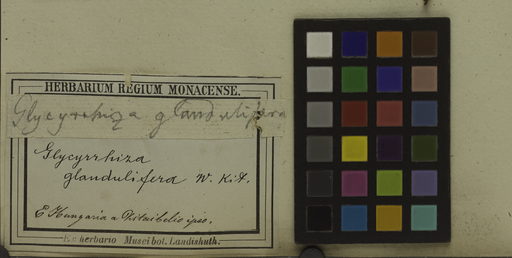 HERBARIUM REGIUM MONACENSE.
Glycyrrhiza glandulifera
Glycyrrhiza
glandulifera W. Kit.
E Hungaria a Kitaibelio ipso.
Ex herbario Musei bot. Landishuth.